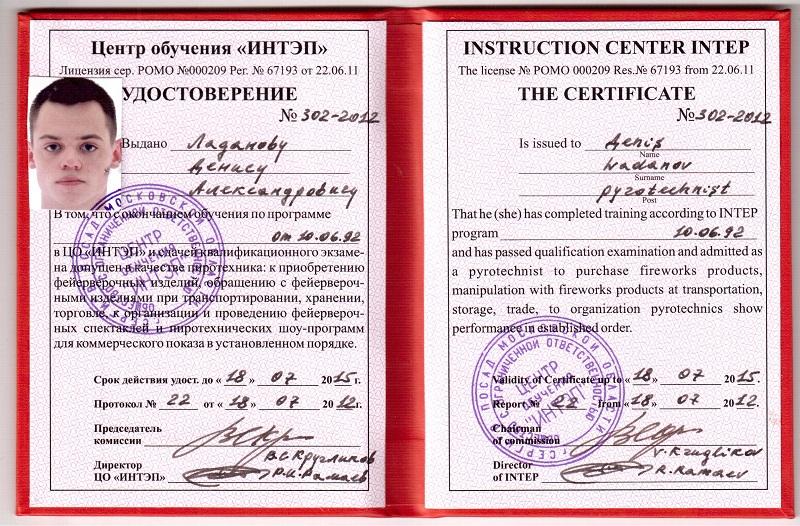 Центр обучения «ИНТЭП»
Лицензия сер. РОМО №000209 Рег. № 67193 от 22.06.11
УДОСТОВЕРЕНИЕ
№ 302-2012
Выдано Ладанову
Денису
Александровичу
В том, что с окончанием обучения по программе
от 10.06.92
в ЦО «ИНТЭП» и сдачей квалификационного экзаме-
на допущен в качестве пиротехника: к приобретению
фейерверочных изделий, обращению с фейервероч-
ными изделиями при транспортировании, хранении,
торговле, к организации и проведению фейервероч-
ных спектаклей и пиротехнических шоу-программ
для коммерческого показа в установленном порядке.
Срок действия удост. до « 18 » 07 2015 г.
Протокол № 22 от « 18 » 07 2012 г.
Председатель
комиссии
В.С. Кругликов
Директор
ЦО «ИНТЭП» Р.И. Рамаев
ЦЕНТР ОБУЧЕНИЯ "ИНТЭП"
INSTRUCTION CENTER INTEP
The license № РОМО 000209 Res.№ 67193 from 22.06.11
THE CERTIFICATE
№ 302-2012
Is issued to Denis
Name
Ladanov
Surname
pyrotechnist
Post
That he (she) has completed training according to INTEP
program 10.06.92
and has passed qualification examination and admitted as
a pyrotechnist to purchase fireworks products,
manipulation with fireworks products at transportation,
storage, trade, to organization pyrotechnics show
performance in established order.
Validity of Certificate up to « 18 » 07 2015.
Report № 22 from « 18 » 07 2012.
Chairman
of commission
V. Kruglikov
Director
of INTEP R. Ramaev
ЦЕНТР ОБУЧЕНИЯ "ИНТЭП"